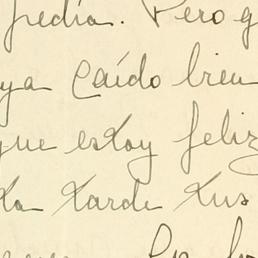 pedía. Pero q
ya caído bien
que estoy feliz
ta tarde tus